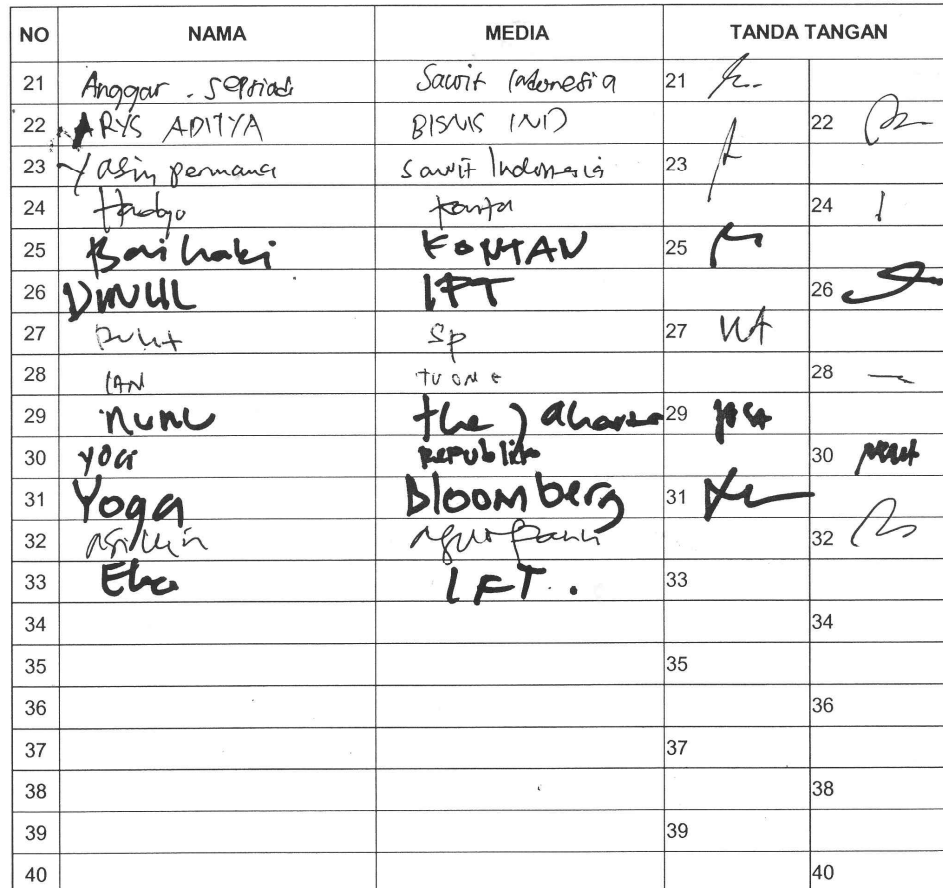 NO NAMA MEDIA TANDA TANGAN
21 Anggar . Septiadi Sawit Indonesia 21
22 ARYS ADITYA BISNIS IND 22
23 Yasin permana Sawit Indonesia 23
24 24
25 Baihaki KONTAN 25
26 IFT 26
27 SP 27
28 IAN TV ONE 28
29 NUNU the 29
30 YOGI Republika 30
31 Yoga Bloomberg 31
32 32
33 Eka IFT . 33
34 34
35 35
36 36
37 37
38 38
39 39
40 40